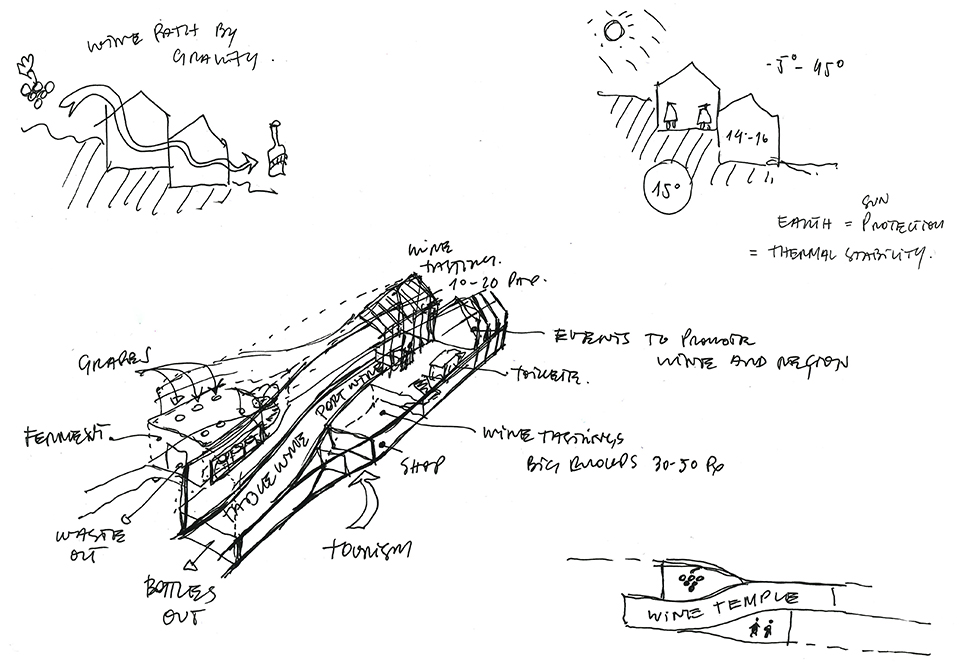 WINE PATH BY
GRAVITY.
-5°-45°
14°-16
15°
SUN
EARTH = PROTECTION
= THERMAL STABILITY.
WINE
TASTING.
10-20
EVENTS TO PROMOTE
WINE AND REGION
TOILETE.
GRAPES
PORT WINE
FERMENT
TABLE WINE
WINE TASTINGS
BIG 30-50
SHOP
WASTE
OUT
TOURISM
BOTTLES
OUT
WINE TEMPLE